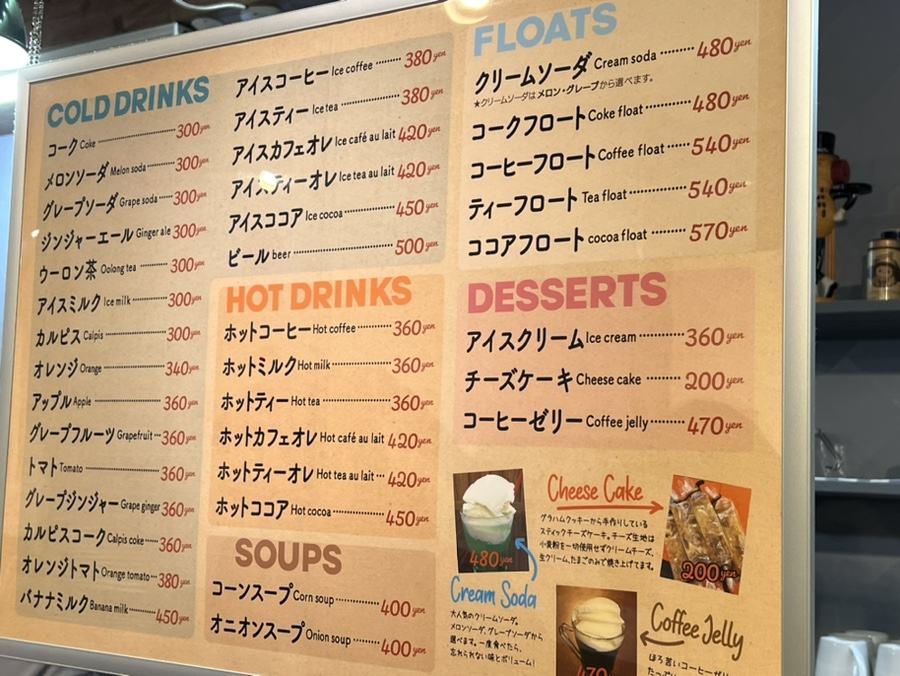 COLD DRINKS
コーク Coke 300yen
メロンソーダ Melon soda 300yen
グレープソーダ Grape soda 300yen
ジンジャーエール Ginger ale 300yen
ウーロン茶 Oolong tea 300yen
アイスミルク Ice milk 300yen
カルピス Calpis 300yen
オレンジ Orange 340yen
アップル Apple 360yen
グレープフルーツ Grapefruit 360yen
トマト Tomato 360yen
グレープジンジャー Grape ginger 360yen
カルピスコーク Calpis coke 360yen
オレンジトマト Orange tomato 380yen
バナナミルク Banana milk 450yen
アイスコーヒー Ice coffee 380yen
アイスティー Ice tea 380yen
アイスカフェオレ Ice café au lait 420yen
アイスティーオレ Ice tea au lait 420yen
アイスココア Ice cocoa 450yen
ビール beer 500yen
HOT DRINKS
ホットコーヒー Hot coffee 360yen
ホットミルク Hot milk 360yen
ホットティー Hot tea 360yen
ホットカフェオレ Hot café au lait 420yen
ホットティーオレ Hot tea au lait 420yen
ホットココア Hot cocoa 450yen
SOUPS
コーンスープ Corn soup 400yen
オニオンスープ Onion soup 400yen
FLOATS
クリームソーダ Cream soda 480yen
★クリームソーダは メロン・グレープから選べます。
コークフロート Coke float 480yen
コーヒーフロート Coffee float 540yen
ティーフロート Tea float 540yen
ココアフロート cocoa float 570yen
DESSERTS
アイスクリーム Ice cream 360yen
チーズケーキ Cheese cake 200yen
コーヒーゼリー Coffee jelly 470yen
480yen
Cream Soda
大人気のクリームソーダ。
メロンソーダ、グレープソーダから
選べます。一度食べたら、
忘れられない味とボリューム!
Cheese Cake
グラハムクッキーから手作りしている
スティックチーズケーキ。チーズ生地は
小麦粉を一切使用せずクリームチーズ、
生クリーム、たまごのみで焼き上げてます。
200yen
470yen
Coffee Jelly
ほろ苦いコーヒーゼリ